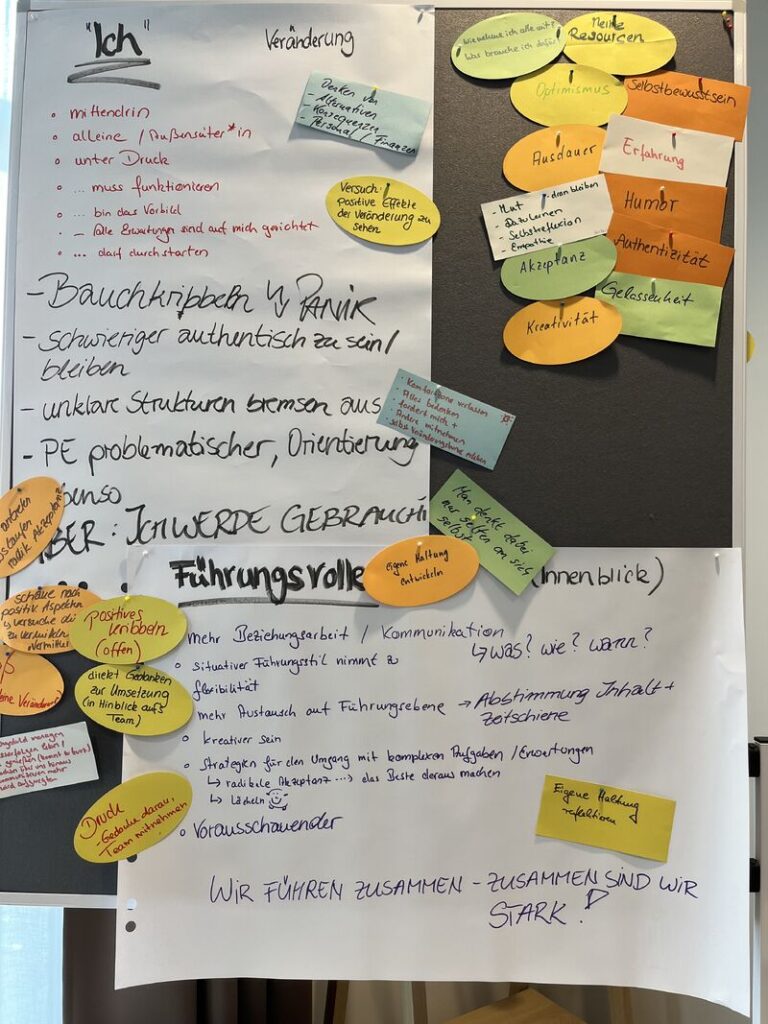 "Ich"
Veränderung
mittendrin
alleine / Außensäiter*in
unter Druck
... muss funktionieren
... bin das Vorbild
- Alle Erwartungen sind auf mich gerichtet
... darf durchstarten
- Bauchkribbeln ↯ PANIK
- schwieriger authentisch zu sein/
bleiben
- unklare Strukturen bremsen aus
- PE problematischer, Orientierung
ebenso
ABER: ICH WERDE GEBRAUCHT
Denken von
- Alternativen
- Konsequenzen
- Personal / Finanzen
Versuch:
positive Effekte
der Veränderung zu
sehen
Wie nehme ich alle mit?
Was brauche ich dafür?
Meine
Resourcen
Optimismus
Selbstbewusstsein
Ausdauer
Erfahrung
- Mut - dran bleiben
- Dazulernen
- Selbstreflexion
- Empathie
Humor
Authentizität
Akzeptanz
Gelassenheit
Kreativität
- Komfortzone verlassen
- Alles bedenken
- fordert mich +
- Andere mitnehmen
- selbst Veränderungskurve erleben
Man denkt dabei
nur selten an sich
selbst
radik. Akzeptanz
schaue nach
positiv. Aspekten
versuche die
zu vermitteln
Positives
Kribbeln
(offen)
direkt Gedanken
zur Umsetzung
(in Hinblick aufs
Team)
Druck
- Gedanke daran,
Team mitnehmen
Führungsrolle (Innenblick)
eigene Haltung
entwickeln
mehr Beziehungsarbeit / Kommunikation
↳ was? wie? wann?
situativer Führungsstil nimmt zu
flexibilität
mehr Austausch auf Führungsebene → Abstimmung Inhalt +
Zeitschiene
kreativer sein
Strategien für den Umgang mit komplexen Aufgaben / Erwartungen
↳ radikale Akzeptanz ...> das Beste daraus machen
↳ Lächeln
Vorausschauender
Eigene Haltung
reflektieren
WIR FÜHREN ZUSAMMEN - ZUSAMMEN SIND WIR
STARK!